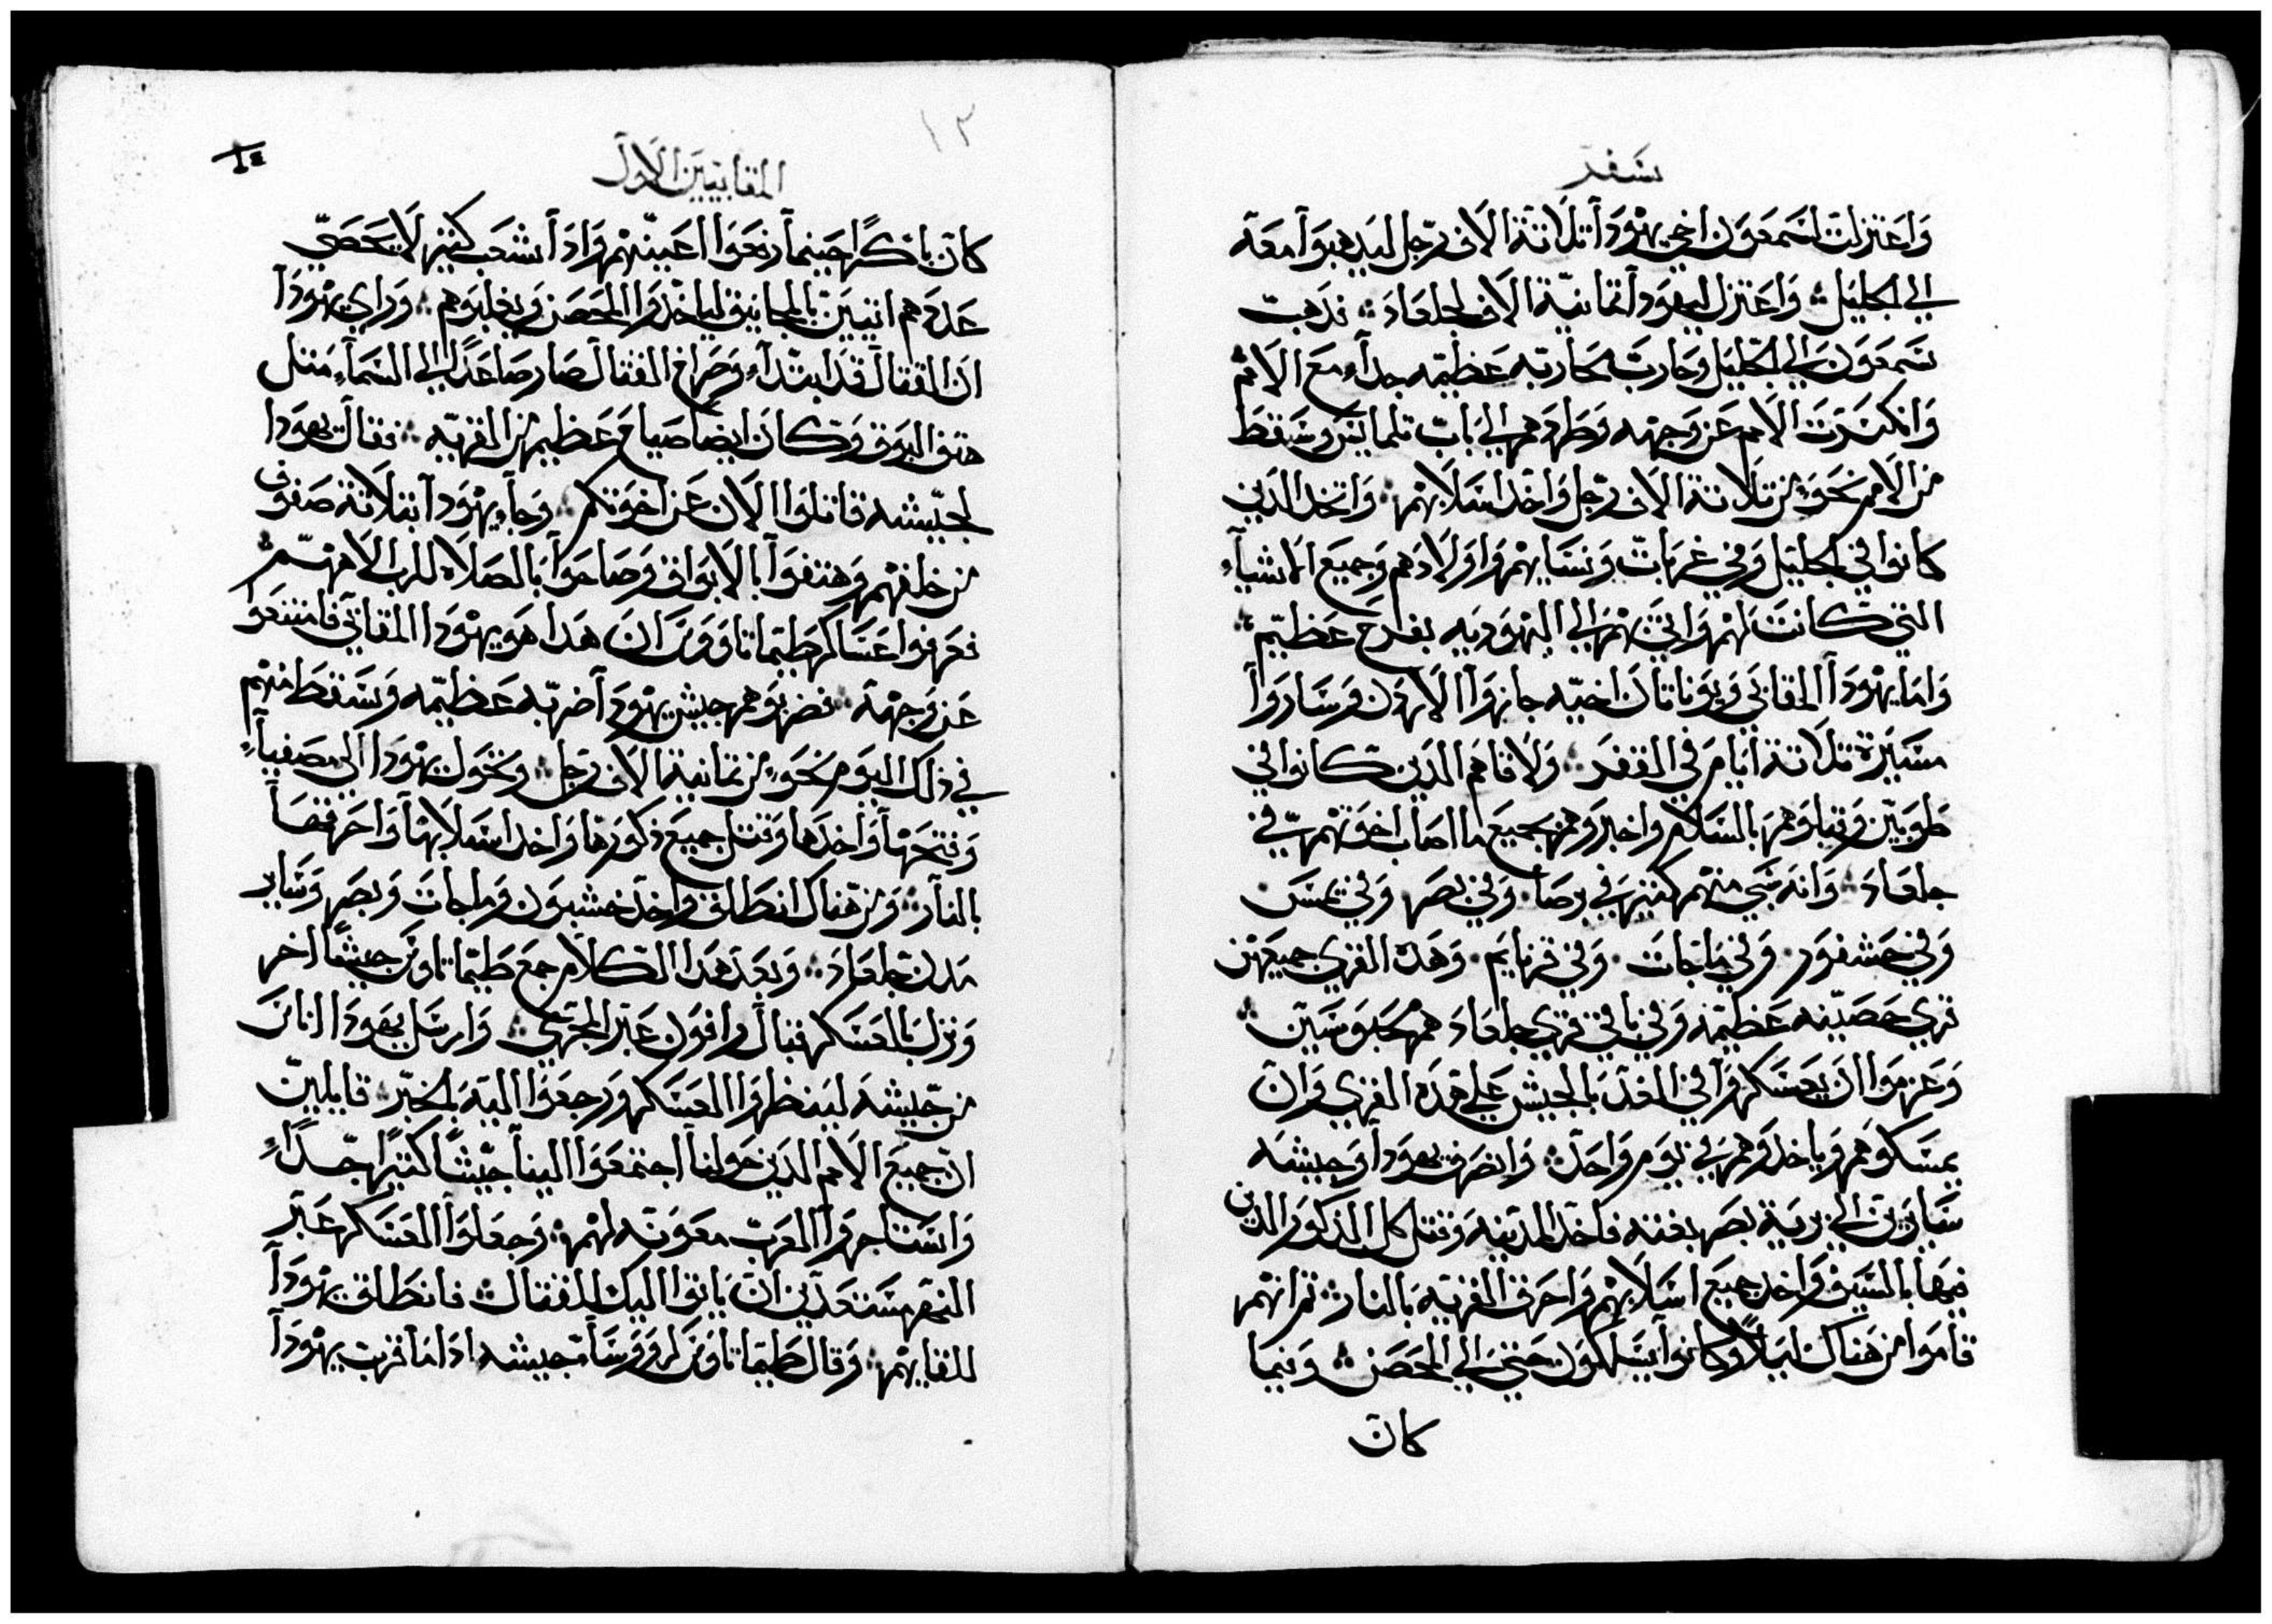 سفر
واعتزلت لسمعون اخي يهودا تلاتة الاف رجل ليدهبوا معه
الي الجليل واعتزل ليهودا تمانية الاف لجلعاد فدهب
سمعون الي الجليل وحارب محاربه عظيمه جداً مع الامم
وانكسرت الامم عن وجهه وطردهم الي باب تلمايس وسقط
من الامم نحو من تلاتة الاف رجل واخد اسلابهم واتخد الدين
كانوا في الجليل وفي عربات ونسايهم واولادهم وجميع الاشياء
التي كانت لهم واتي بهم الي اليهوديه بفرح عظيم
واما يهودا المقابي ويوناتان اخيه جازوا الاردن وساروا
مسيرة تلاتة ايام في القفر ولاقاهم الدين كانوا في
طوبين وقبلوهم بالسلام واخبروهم بجميع ما اصاب اخوتهم في
جلعاد وانه سبي منهم كتير في برصا وفي بصر وفي يمس
وفي حشفور وفي ماجات وفي قرنايم وهده القري جميعهن
قري حصينه عظيمه وفي باقي قري جلعاد هم محبوسين
وعزموا ان يعسكروا في الغد بالجيش علي هده القري وان
يمسكوهم وياخدوهم في يوم واحد وانصرف يهودا وجيشه
سايرين الي برية بصر بغته فاخد المدينه وقتل كل الدكور الدين
فيها بالسيف واخد جميع اسلابهم واحرق القريه بالنار تم انهم
قاموا من هناك ليلاً وكانوا يسلكون حتي الي الحصن وفيما
كان
١٣
المقابيين الاول
١٤
كان باكراً حينما رفعوا اعينهم وادا شعب كتير لا يحصي
عددهم اتيين بالمجانيق لياخدوا الحصن ويغلبوهم وراي يهودا
ان القتال قد ابتداء وصراخ القتال صار صاعداً الي السماء متل
هتف البوق وكان ايضا صياح عظيم من القريه فقال يهودا
لجيشه قاتلوا الان عن اخوتكم وجاء يهودا بتلاتة صفوف
من خلفهم وهتفوا بالابواق وصاحوا بالصلاه للرب الاههم
فعرفوا عساكر طيماتاووس ان هدا هو يهودا المقابي فامتنعوا
عن وجهه فضربوهم جيش يهودا ضربه عظيمه وسقط منهم
في دلك اليوم نحو من تمانية الاف رجل وتحول يهودا الي مصفيا
وفتحها واخدها وقتل جميع دكورها واخد اسلابها واحرقها
بالنار ومن هناك انطلق واخد خشبون وماجات وبصر وساير
مدن جلعاد وبعد هدا الكلام جمع طيماتاوس جيشاً اخر
ونزل بالعسكر قبال رافون عبر المجري وارسل يهودا اناس
من جيشه لينظروا العسكر ورجعوا اليه بالخبر قايلين
ان جميع الامم الدين حولنا اجتمعوا الينا جيشاً كتيراً جداً
واستاجروا العرب معونه لهم وجعلوا العسكر عبر
النهر مستعدين ان ياتوا اليك للقتال فانطلق يهودا
للقايهم وقال طيماتاوس لروسا جيشه ادا ما قرب يهودا